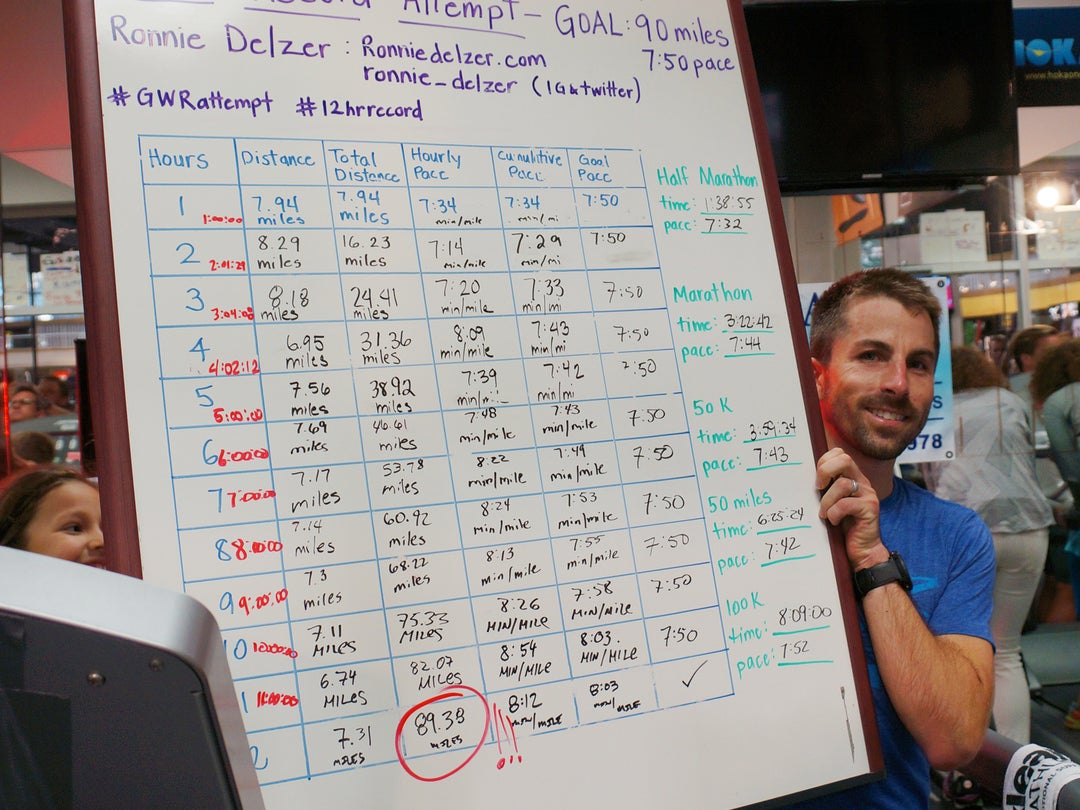 Record Attempt - GOAL: 90 miles
Ronnie Delzer : Ronniedelzer.com 7:50 pace
ronnie_delzer (IG & twitter)
#GWRattempt #12hrrecord
Hours Distance Total Distance Hourly Pace Cumulitive Pace Goal Pace
1 1:00:00 7.94 miles 7.94 miles 7:34 min/mile 7:34 min/mi 7:50
2 2:01:29 8.29 miles 16.23 miles 7:14 min/mile 7:29 min/mi 7:50
3 3:04:00 8.18 miles 24.41 miles 7:20 min/mile 7:33 min/mi 7:50
4 4:02:12 6.95 miles 31.36 miles 8:09 min/mile 7:43 min/mi 7:50
5 5:00:00 7.56 miles 38.92 miles 7:39 min/mi 7:42 min/mi 7:50
6 6:00:00 7.69 miles 46.61 miles 7:48 min/mile 7:43 min/mile 7:50
7 7:00:00 7.17 miles 53.78 miles 8:22 min/mile 7:49 min/mile 7:50
8 8:00:00 7.14 miles 60.92 miles 8:24 min/mile 7:53 min/mile 7:50
9 9:00:00 7.3 miles 68.22 miles 8:13 min/mile 7:55 min/mile 7:50
10 10:00:00 7.11 MILES 75.33 MILES 8:26 MIN/MILE 7:58 MIN/MILE 7:50
1 11:00:00 6.74 MILES 82.07 MILES 8:54 MIN/MILE 8:03. MIN/MILE 7:50
2 7.31 MILES 89.38 MILES !!! 8:12 MIN/MILE 8:03 MIN/MILE ✓
Half Marathon
time: 1:38:55
pace: 7:32
Marathon
time: 3:22:42
pace: 7:44
50 K
time: 3:59:34
pace: 7:43
50 miles
time: 6:25:24
pace: 7:42
100 K
time: 8:09:00
pace: 7:52
HOK
www.hokaon
S
978